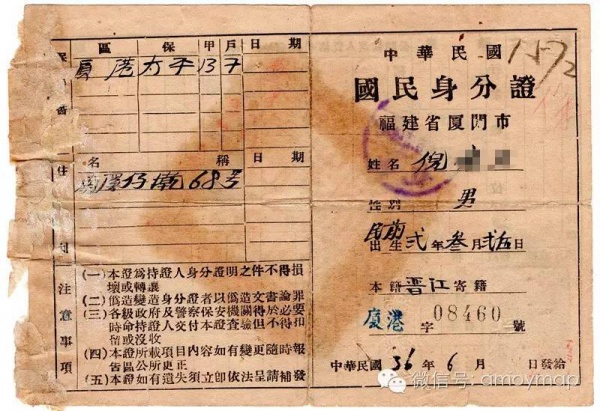 中華民國
國民身分證
福建省厦門市
姓名 倪
性别 男
民前
出生 弍年叁月弍五日
本籍 晋江 寄籍
厦港 字 08460 號
中華民國 36 年 6 月 日發給
區 保 甲 戶 日期
厦港 太平 13 7
住
名稱 日期
68号
注意事項
(一)本證為持證人身分證明之件不得損
壞或轉讓
(二)偽造變造身分證者以偽造文書論罪
(三)各級政府及警察保安機關得於必要
時命持證人交付本證查驗但不得扣
留或沒收
(四)本證所載項目內容如有變更隨時報
請區公所更正
(五)本證如有遺失須立卽依法呈請補發
微信号: ampymap